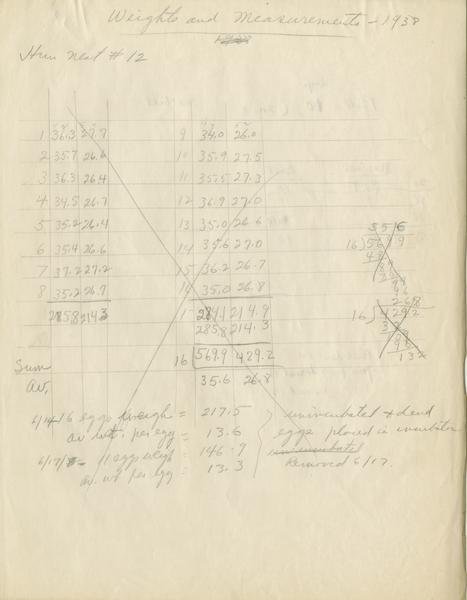 Weights and Measurements - 1938
Hun nest # 12
1 36.3 27.7 9 34.0 26.0
2 35.7 26.6 10 35.9 27.5
3 36.3 26.4 11 35.5 27.3
4 34.5 26.7 12 36.9 27.0
5 35.2 26.4 13 35.0 26.6
6 35.4 26.6 14 35.6 27.0
7 37.2 27.2 15 36.2 26.7
8 35.2 26.7 16 35.0 26.8
285.8 214.3 284.1 214.9
285.8 214.3
Sum 16 569.9 429.2
Av. 35.6 26.8
6/14 - 16 eggs weigh = 217.5
av wt. per egg = 13.6
6/17/ 11 eggs weigh = 146.9
av. wt per egg = 13.3
unincubated & dead
eggs placed in incubator
unincubated
Removed 6/17.
16)
16) 429.2
26.8
132